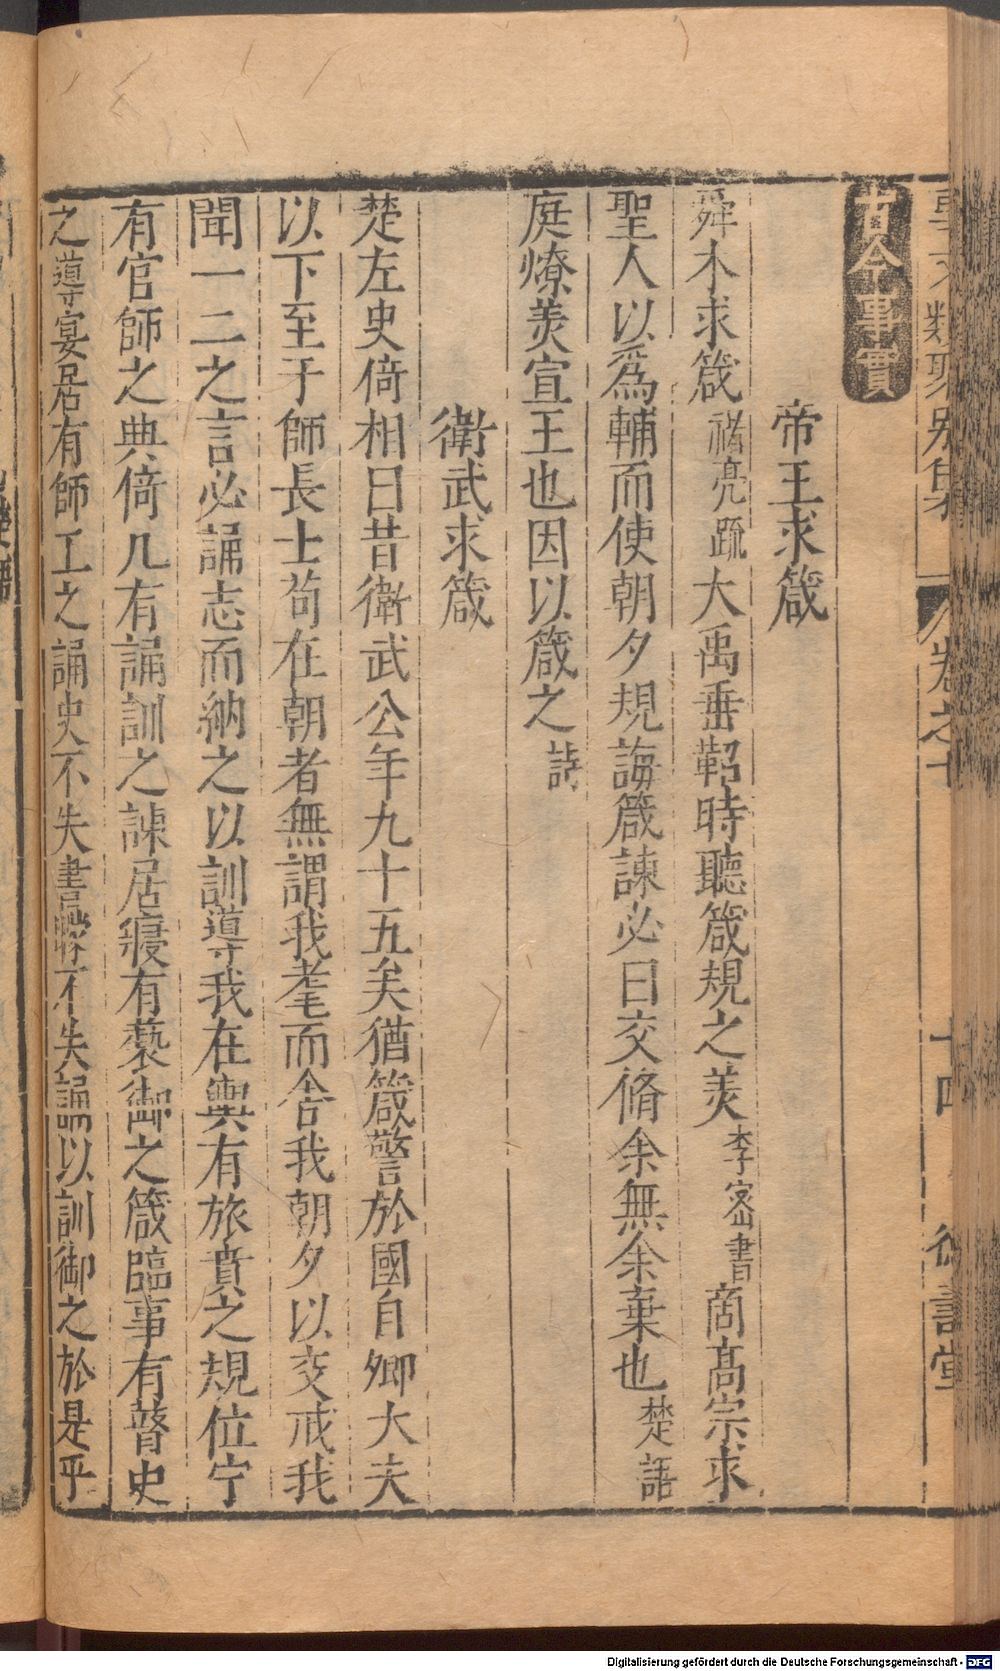 事文類聚別集 卷之十 十四 德壽堂
古今事實
帝王求箴
舜木求箴 禇亮䟽 大禹垂鞀時聽箴規之美 李密書 商髙宗求
聖人以爲輔而使朝夕規誨箴諫必曰交脩余無余棄也 楚語
庭燎美宣王也因以箴之 詩
衛武求箴
楚左史倚相曰昔衛武公年九十五矣猶箴警於國自卿大夫
以下至于師長士苟在朝者無謂我耄而舎我朝夕以交戒我
聞一二之言必誦志而納之以訓導我在輿有旅賁之規位宁
有官師之典倚几有誦訓之諫居寢有䙝御之箴臨事有瞽史
之導宴居有師工之誦史不失書矇不失誦以訓御之於是乎
Digitalisierung gefördert durch die Deutsche Forschungsgemeinschaft - DFG